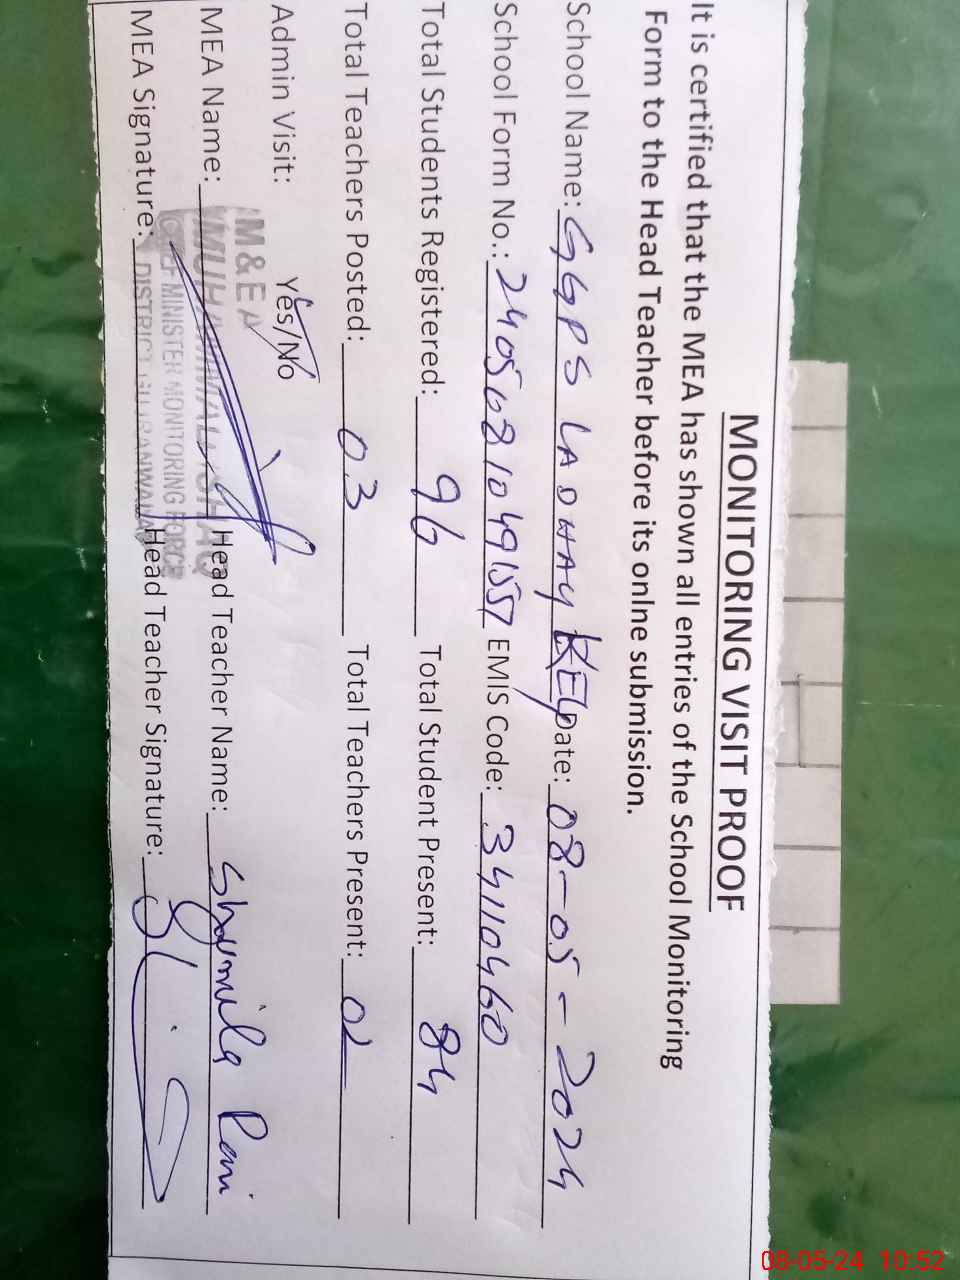 MONITORING VISIT PROOF
It is certified that the MEA has shown all entries of the School Monitoring
Form to the Head Teacher before its onlne submission.
School Name: GGPS LADHAY Date: 08-05-2024
School Form No.: EMIS Code: 34110460
Total Students Registered: 96 Total Student Present: 84
Total Teachers Posted: 03 Total Teachers Present: 02
Admin Visit: Yes/No
M&EA
MEA Name: Head Teacher Name: Shamila Rani
MEA Signature: Head Teacher Signature:
CHIEF MINISTER MONITORING FORCE
DISTRICT GUJRANWALA
08-05-24 10:52